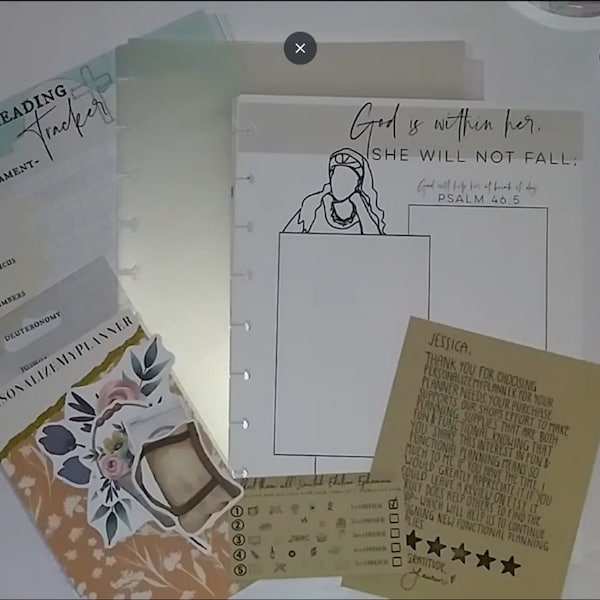 READING
Tracker
AMENT-
CUS
MBERS
DEUTERONOMY
God is within her,
SHE WILL NOT FALL;
God will help her at break of day.
PSALM 46:5
SONALIZEMYPLANNER
JESSICA,
THANK YOU FOR CHOOSING
PERSONALIZEMYPLANNER FOR YOUR
PLANNER NEEDS. YOUR PURCHASE
SUPPORTS OUR SHOP'S EFFORT TO MAKE
PLANNING SUPPLIES THAT ARE BOTH
FUN & FUNCTIONAL. KNOWING THAT
YOU SHARE THE INTEREST IN FUN &
FUNCTIONAL PLANNING MEANS SO
MUCH TO ME! IF YOU HAVE TIME, I
WOULD GREATLY APPRECIATE IT IF YOU
COULD LEAVE A REVIEW ON ETSY. IT
DOES HELP OTHERS TO FIND THE
WHICH WILL HELP US TO CONTINUE
GNING NEW FUNCTIONAL PLANNING
LIES
GRATITUDE,
Lauren
them all! Limited Edition Ephemera
1
1st ORDER
2
ORDER
3
ORDER
4
ORDER
5
ORDER